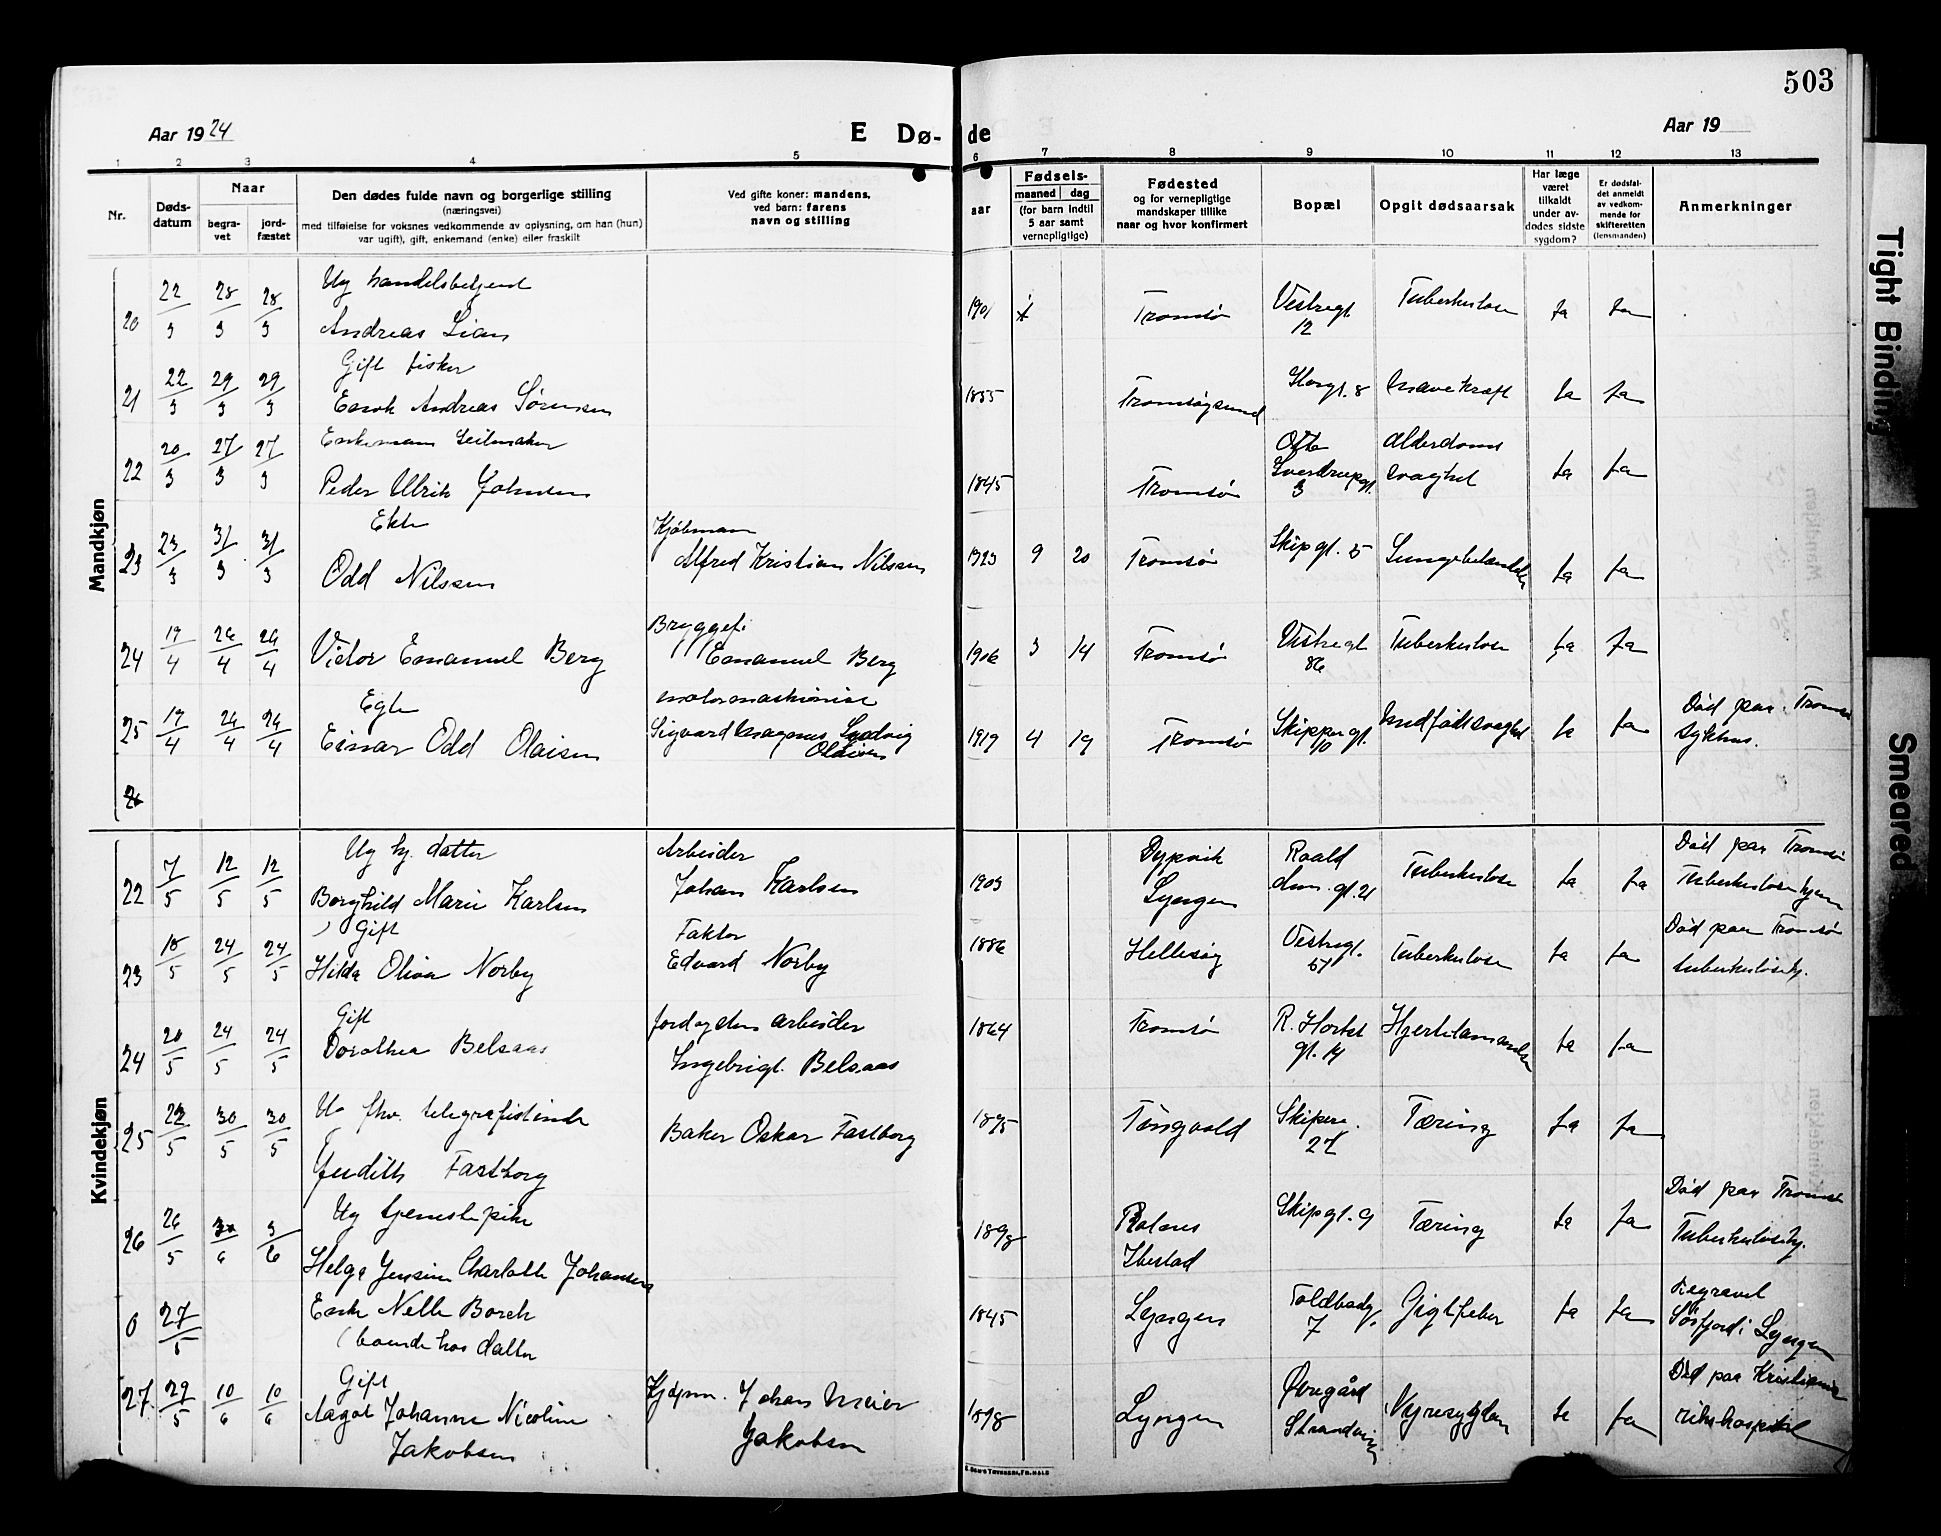 503
Aar 1924
E Dø-
de
Aar 19
1 2 3 3 4 5 6 7 8 9 10 11 12 13
Nr.
Døds-
datum
Naar
begra-
vet
jord-
fæstet
Den dødes fulde navn og borgerlige stilling
(næringsvei)
med tilføielse for voksnes vedkommende av oplysning, om han (hun)
var ugift), gift, enkemand (enke) eller fraskilt
Ved gifte koner: mandens,
ved barn: farens
navn og stilling
Fødsels-
aar
maaned dag
(for barn indtil
5 aar samt
vernepligtige)
Fødested
og for vernepligtige
mandskaper tillike
naar og hvor konfirmert
Bopæl
Opgit dødsaarsak
Har læge
været
tilkaldt
under av-
dødes sidste
sygdom?
Er dødsfal-
det anmeldt
av vedkom-
mende for
skifteretten
(lensmanden)
Anmerkninger
Mandkjøn
20 22/3 28/3 28/3 Ug handelsbetjent
Andreas Lian
1901 Tromsø Vestregt 12 Tuberkulose Ja Ja
21 22/3 29/3 29/3 Gift fisker
Enok Andreas Sørensen
1855 Tromsøysund gt. 8 Mavekræft Ja Ja
22 20/3 27/3 27/3 Enkemann Seilmaker
Peder Ulrik Johnsen
1845 Tromsø Otto Sverdrupgt. 3 Alderdoms svaghet Ja Ja
23 23/3 31/3 31/3 Ekte
Odd Nilsen
Kjøbmann
Alfred Kristian Nilssen
1923 9 20 Tromsø Skipgt. 5 Lungebetændelse Ja Ja
24 19/4 26/4 26/4 Victor Emanuel Berg
Bryggef.
Emanuel Berg
1906 3 14 Tromsø Vestregt 86 Tuberkulose Ja Ja
25 19/4 24/4 24/4 Egte
Einar Odd Olaisen
motormaskinist
Sigvard Magnus Ludvig
Olaisen
1919 4 19 Tromsø Skippergt. 10 Medfødt svaghet Ja Ja Død paa Tromsø
sykhus.
26
Kvindekjøn
22 7/5 12/5 12/5 Ug hj. datter
Borghild Marie Karlsen
Arbeider
Johan Karlsen
1903 Dypvik
Lyngen Roald
Am. gt. 21 Tuberkulose Ja Ja Død paa Tromsø
Tuberkulosehjem
23 18/5 24/5 24/5 Gift
Hilda Oliva Norby
Faktor
Edvard Norby
1886 Hellesøy Vestregt. 57 Tuberkulose Ja Ja Død paa Tromsø
tuberkulosehj.
24 20/5 24/5 24/5 Gift
Dorothea Belsaas
Jord og dens arbeider
Ingebrigt Belsaas
1864 Tromsø R. Horbst
gt. 14 Hjertelammelse Ja Ja
25 22/5 30/5 30/5 U. fhv. telegrafistinde
Judith Fastborg
Baker Oskar Fastborg
1895 Tingvold Skiperg. 27 Tæring Ja Ja
26 26/5 /6 3/6 Ug tjenestepike
Helga Jensine Charlotte Johansen
1898 Rolnes
Ibestad Skipgt. 9 Tæring Ja Ja Død paa Tromsø
Tuberkulosehj.
0 27/5 Enke Nelle Borch
(boende hos datter
1845 Lyngen Toldbodg. 7 Gigtfeber Ja Ja Begravet
Sørfjord i Lyngen
27. 29/5 10/6 10/6 Gift
Aagot Johanne Nicoline
Jakobsen
Kjøpm. Johan Meier
Jakobsen
1898 Lyngen Øvregård
Strandvei Nyresygdom Ja Ja Død paa Kristiania
rikshospital
Tight Binding
Smeared